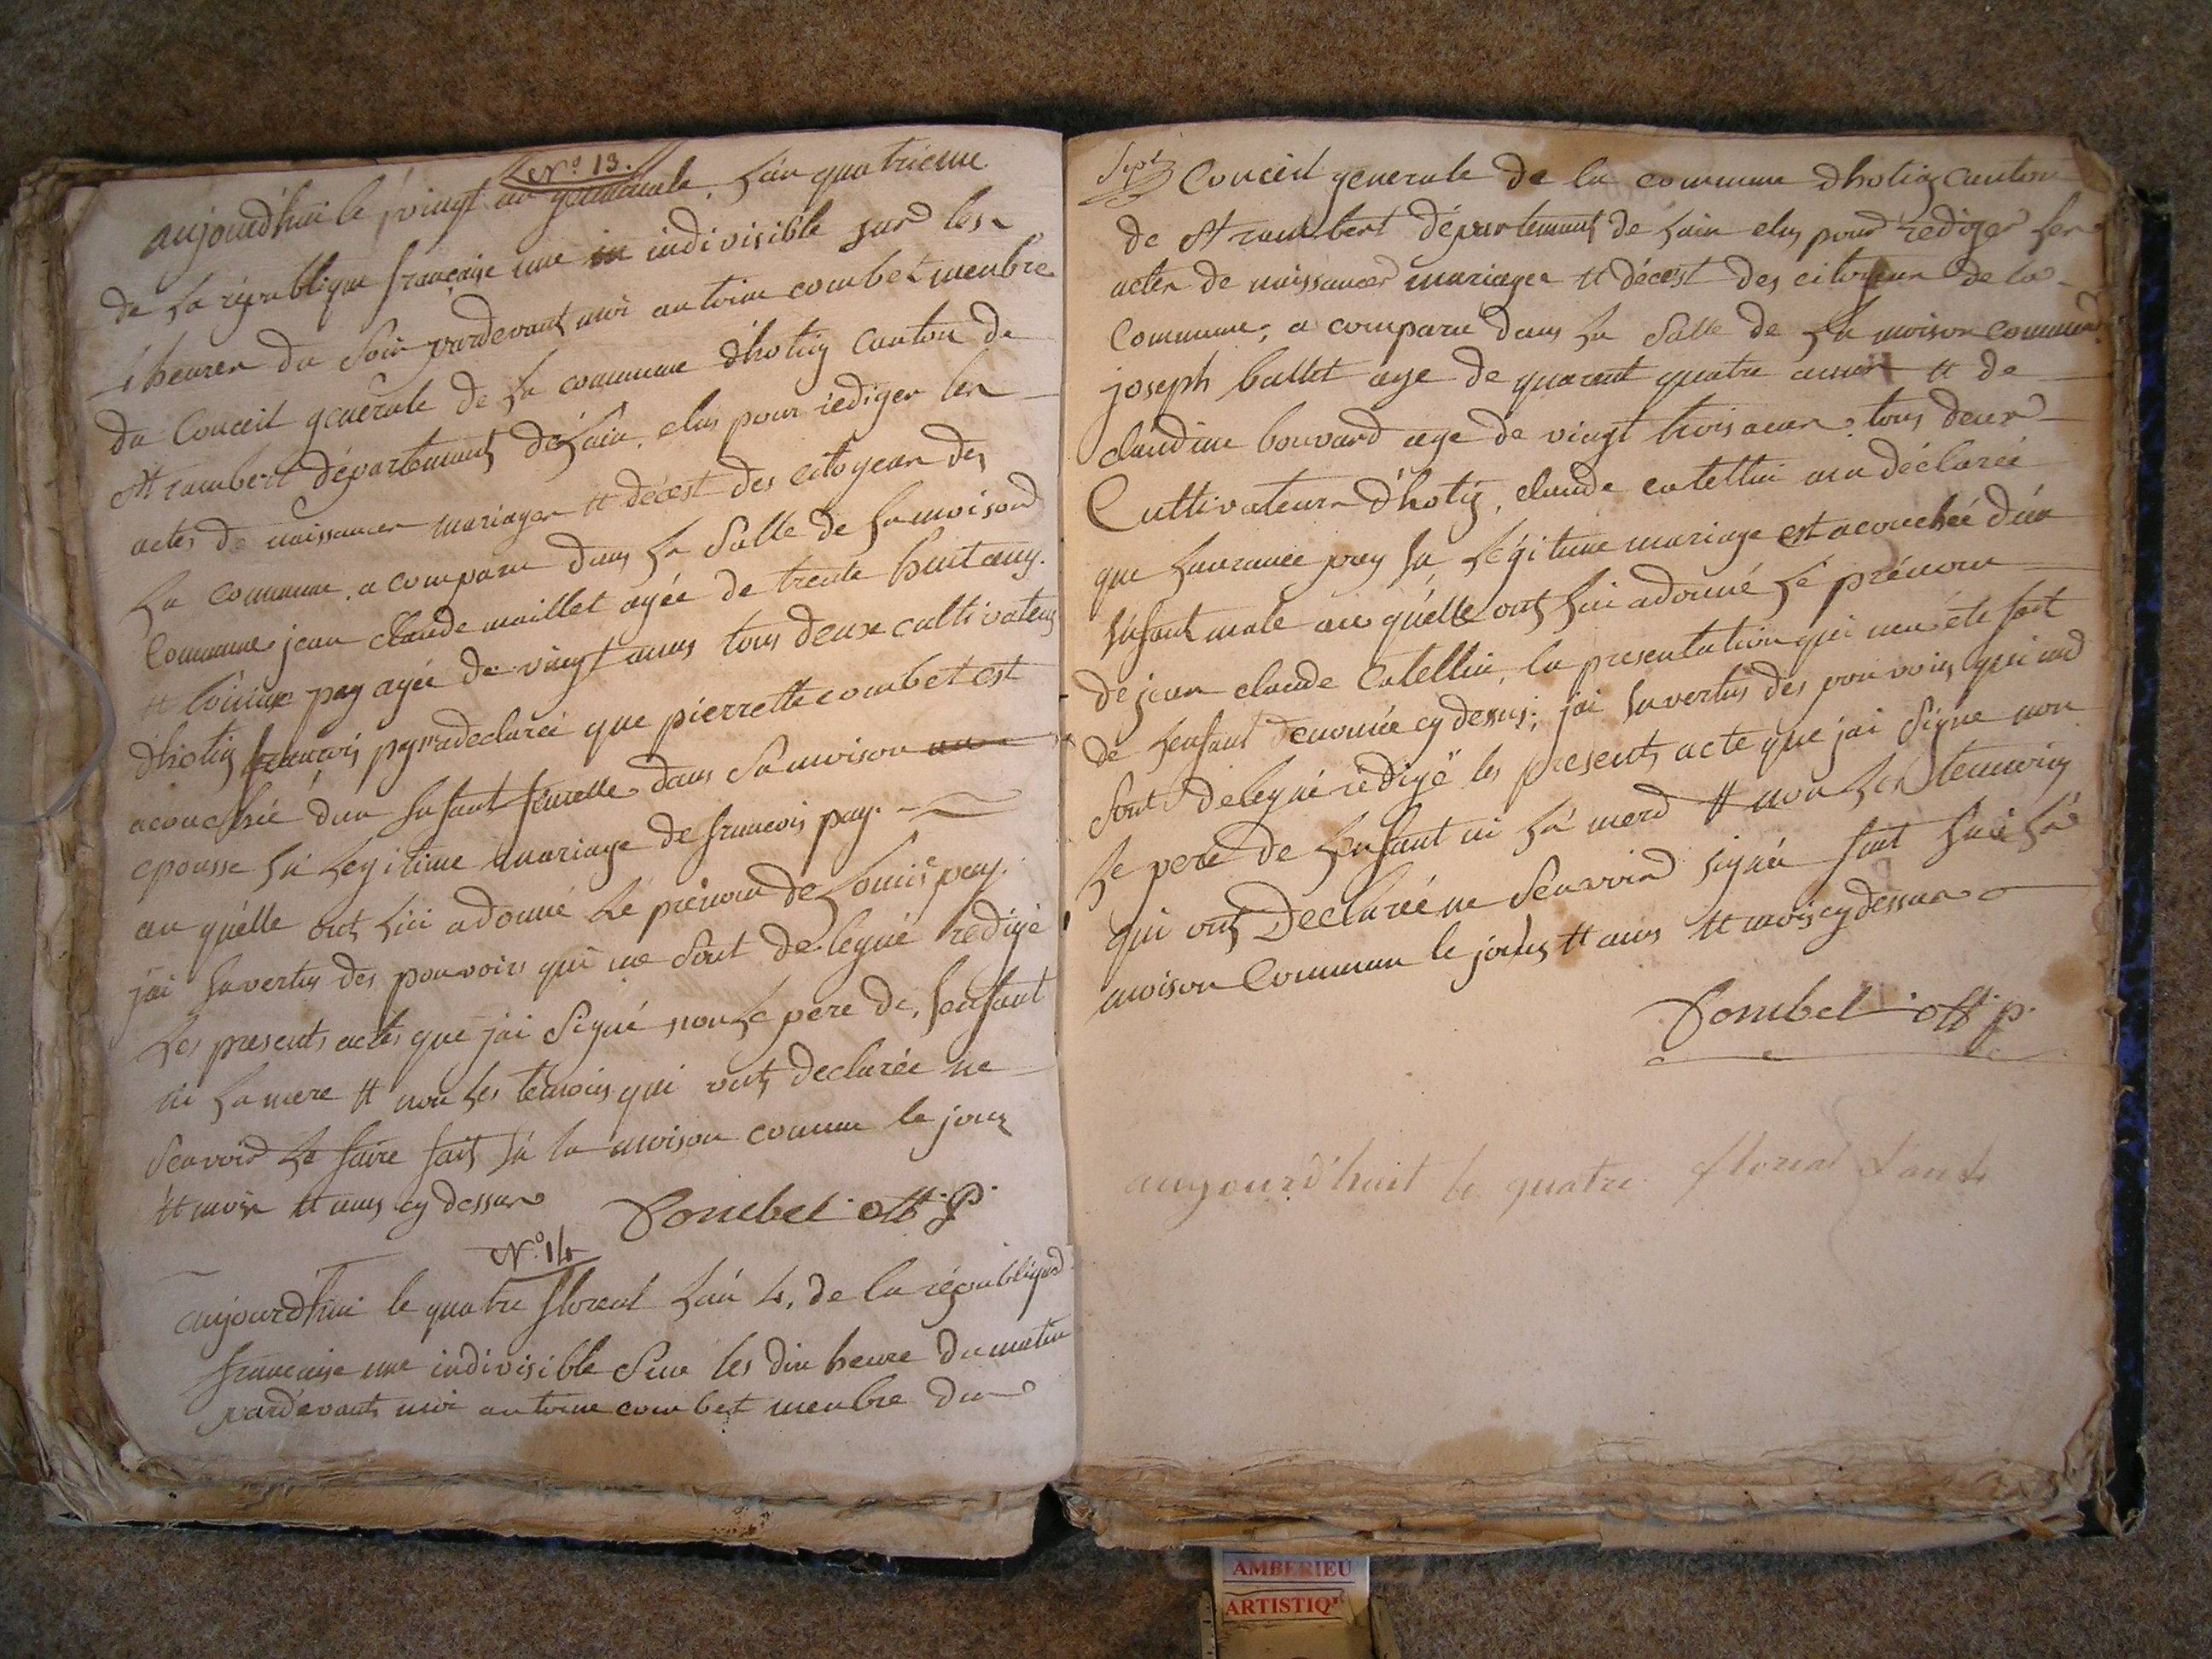 N.º 13.
aujourdhui le vingt un germinale, L'an quatrieme
de La république française une in indivisible sur les
heures du Soir pardevant moi antoine combet menbre
du Conceil generale de La commune dhotig canton de
St rambert départements de Lain, elus pour rediger les
actes de naissances mariages et décest des citoyens des
La Commune, a comparu dans La Salle de La moison
Commune jean claude maillet agée de trente huit ans.
et Loinine pay agée de vingt anns tous deux cultivateurs
dhotig francois pay ma declarée que pierrette combet est
acouchée dun Enfant femelle dans Sa moison
epousse En Legitime mariage de francois pay.
au quélle ont Lui adonné Le prénom de Louise pay.
jai En vertus des pouvoirs qui me Sont delegué redigé
Les presents actes que jai Signé non Le pere de, Lenfant
ni La mere et non Les temoins qui onts declarée ne
Scavoir Le faire faits En la moison commun le jour
et mois et ans cy dessus Combet off. p.
N.º 14
aujourdhui le quatre floreal Lan 4, de la républiqued
francaise une indivisible Sur les dix heure du matin
pardevants moi antoine combet menbre du
Sept Conceil generale de la commune dhotig canton
de St rambert départements de Lain elus pour rediger Les
actes de naissances mariages et décest des citoyens de la
Commune, a comparu dans La Salle de La moison commune
joseph ballet age de quarente quatre annes et de
claudine bouvard age de vingt trois anns tous deux
Cultivateurs dhotig, claude catellin ma déclarée
que Laurance pay En Légitime mariage est acouchée dun
Enfant male au quélle onts Lui adonné Lé prénom
de jean claude Catellin, la presentation qui ma été fait
de Lenfant denomée cy dessus, jai En vertus des pouvoirs qui md
Sont delegué rédigé les presents acte que jai Signe non
Le pere de Lenfant ni La merd et non Les temoins
qui onts Declarée ne Scavoir signée fait En La
moison Commun le jours et ans et mois cy dessus
Combet off. p.
aujourd'huit le quatre floreal L'an 4
AMBERIEU
ARTISTIQ